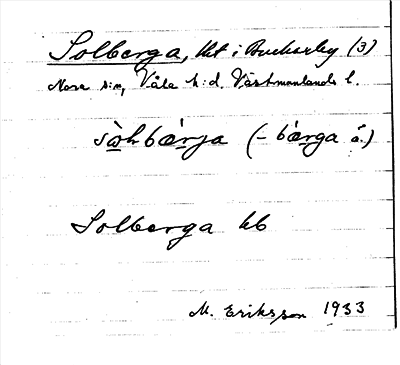 Solberga, lht i Buckarby (3)
Nora s:n, Våla h:d. Västmanlands l.
sòlbærja (-bærga å.)
Solberga kb
M. Eriksson 1933